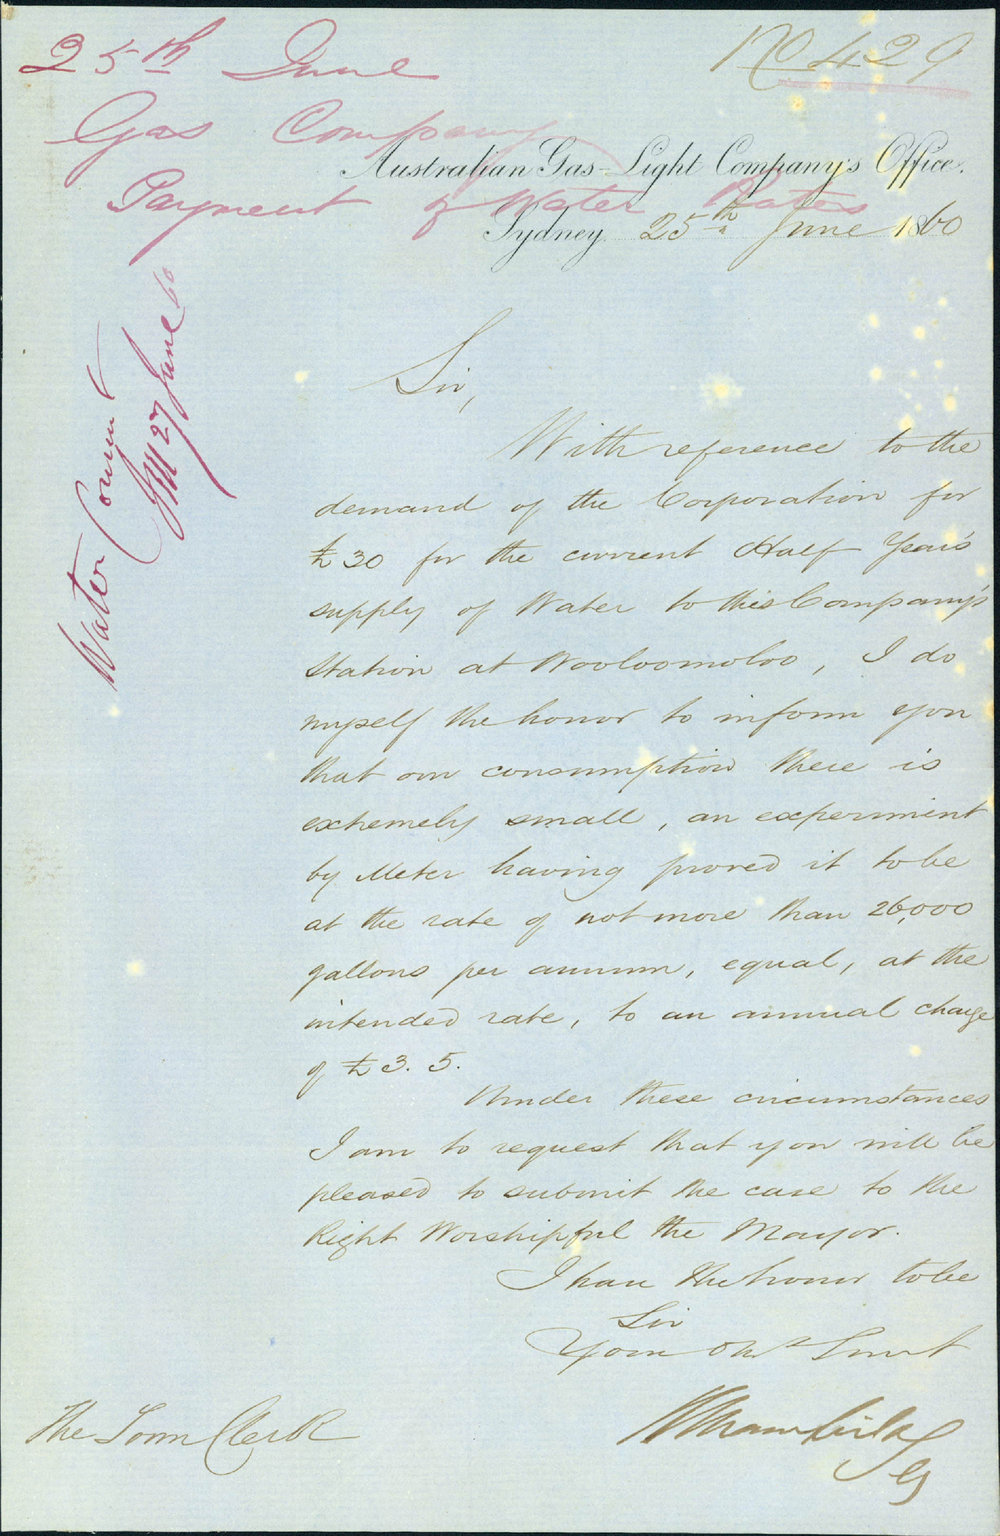 25th June
No 429
Gas Company
Australian Gas-Light Company's Office.
Payment of Water Rates
Sydney 25th June 1860
Water Comm
27 June 60
Sir,
With reference to the
demand of the Corporation for
£30 for the current Half Year's
supply of Water to this Company's
Station at Wooloomoloo, I do
myself the honor to inform you
that our consumption there is
extremely small, an experiment
by Meter having proved it to be
at the rate of not more than 26,000
gallons per annum, equal, at the
intended rate, to an annual charge
of £3. 5.
Under these circumstances
I am to request that you will be
pleased to submit the case to the
Right Worshipful the Mayor.
I have the honor to be
Sir
Your Obt Servt
The Town Clerk